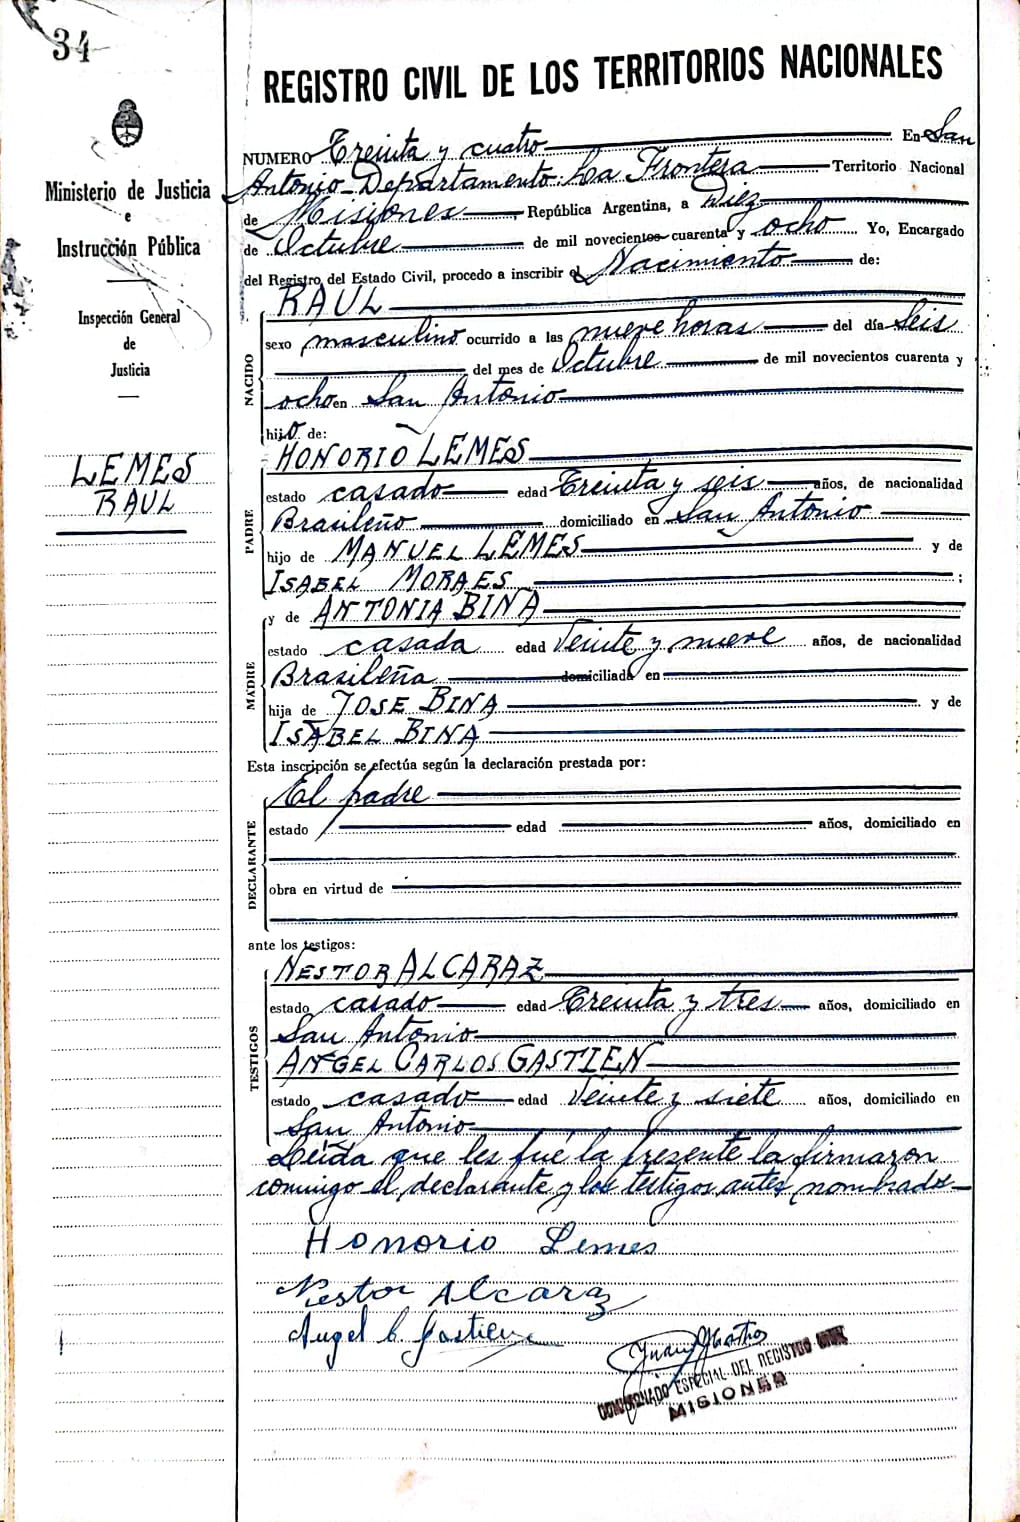 34
Ministerio de Justicia
e
Instrucción Pública
Inspección General
de
Justicia
LEMES
RAUL
REGISTRO CIVIL DE LOS TERRITORIOS NACIONALES
NUMERO Treinta y cuatro En San
Antonio-Departamento: La Frontera Territorio Nacional
de Misiones, República Argentina, a Diez
de Octubre de mil novecientos cuarenta y ocho Yo, Encargado
del Registro del Estado Civil, procedo a inscribir el Nacimiento de:
NACIDO
RAUL
sexo masculino ocurrido a las nueve horas del día Seis
del mes de Octubre de mil novecientos cuarenta y
ocho en San Antonio
hijo de:
PADRE
HONORIO LEMES
estado casado edad Treinta y seis años, de nacionalidad
Brasileño domiciliado en San Antonio
hijo de MANUEL LEMES y de
ISABEL MORAES ;
MADRE
y de ANTONIA BINA
estado casada edad Veinte y nueve años, de nacionalidad
Brasileña domiciliada en
hija de JOSE BINA y de
ISABEL BINA
Esta inscripción se efectúa según la declaración prestada por:
DECLARANTE
El padre
estado edad años, domiciliado en
obra en virtud de
ante los testigos:
TESTIGOS
NESTOR ALCARAZ
estado casado edad Treinta y tres años, domiciliado en
San Antonio
ANGEL CARLOS GASTIEN
estado casado edad Veinte y siete años, domiciliado en
San Antonio
Leída que les fué la presente la firmaron
conmigo el declarante y los testigos antes nombrados
Honorio Lemes
Nestor Alcaraz
Angel C. Gastien
COMISIONADO ESPECIAL DEL REGISTRO CIVIL
MISIONES